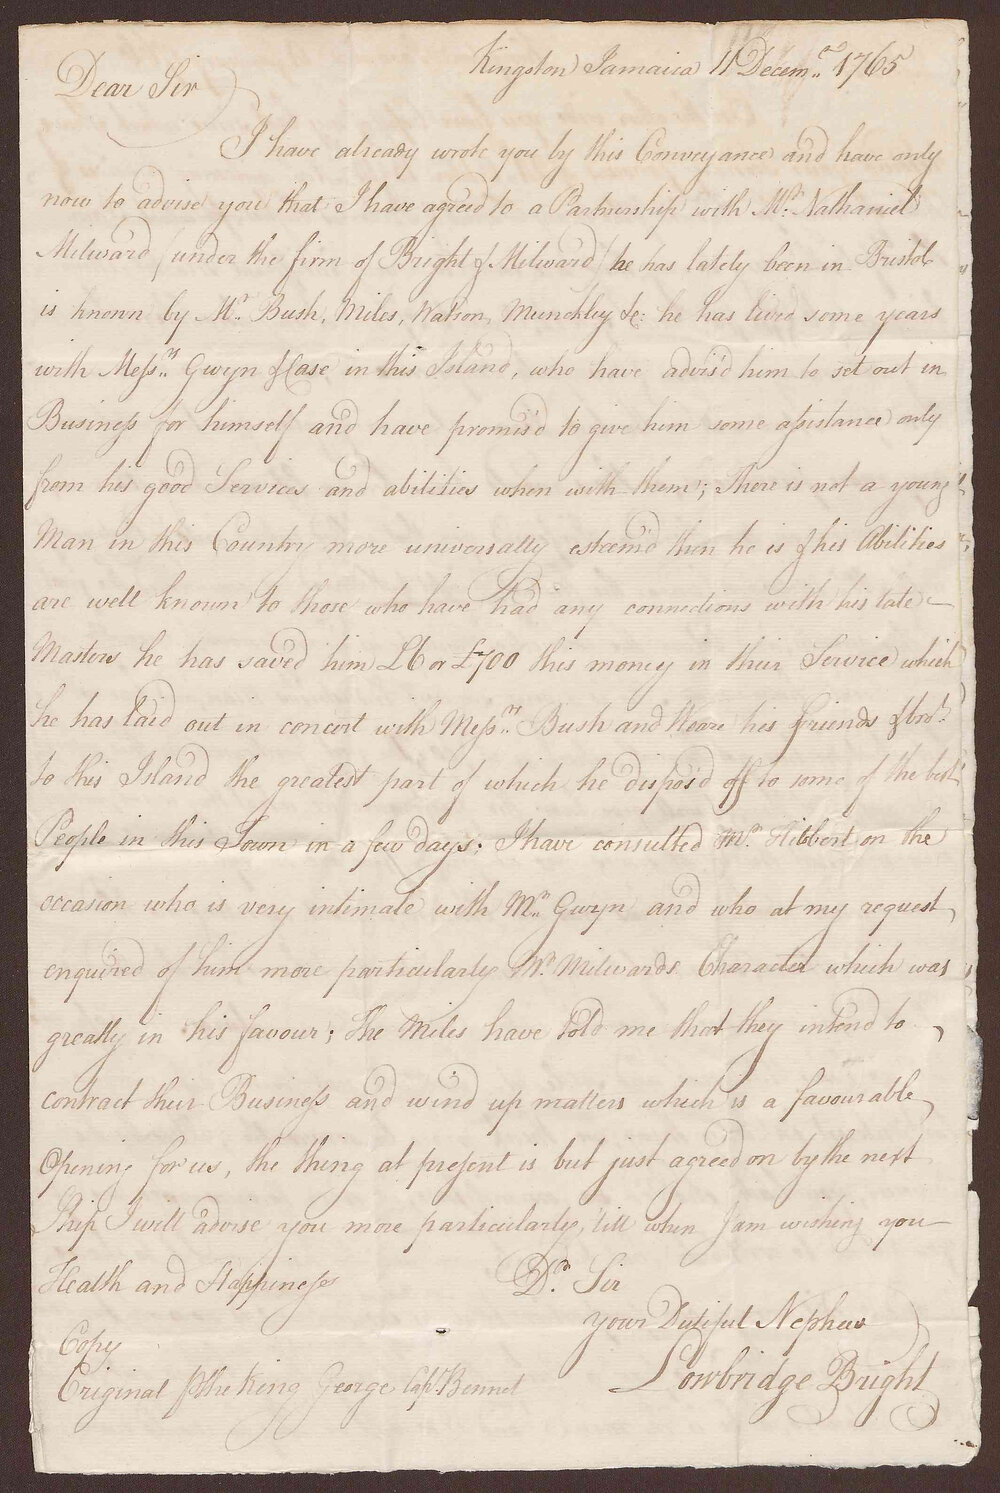 Kingston Jamaica 11 Decem.r 1765
Dear Sir
I have already wrote you by this Conveyance and have only
now to advise you that I have agreed to a Partnership with Mr. Nathaniel
Milward (under the firm of Bright & Milward) he has lately been in Bristol
is known by Mr. Bush, Miles, Watson, Munckley &c: he has lived some years
with Messrs. Gwyn & Case in this Island, who have advis'd him to set out in
Business for himself and have promis'd to give him some assistance only
from his good Services and abilities when with them; There is not a young
Man in this Country more universally esteem'd then he is & his Abilities
are well known to those who have had any connections with his late
Masters he has saved him £6 or £700 this money in their Service which
he has laid out in concert with Messrs. Bush and Hoare his friends & bro.t
to this Island the greatest part of which he dispos'd off to some of the best
People in this Town in a few days; I have consulted Mr. Hibbert on the
occasion who is very intimate with Mr. Gwyn and who at my request
enquired of him more particularly Mr. Milwards Character which was
greatly in his favour; the Miles have told me that they intend to
contract their Business and wind up matters which is a favourable
Opening for us, the thing at present is but just agreed on by the next
Ship I will advise you more particularly, 'till when I am wishing you
Health and Happiness Dr. Sir
your Dutiful Nephew
Lowbridge Bright
Copy
Original p the King George Capt. Bennet